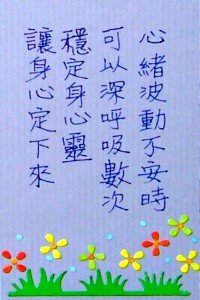 心緒波動不安時
可以深呼吸數次
穩定身心靈
讓身心定下來